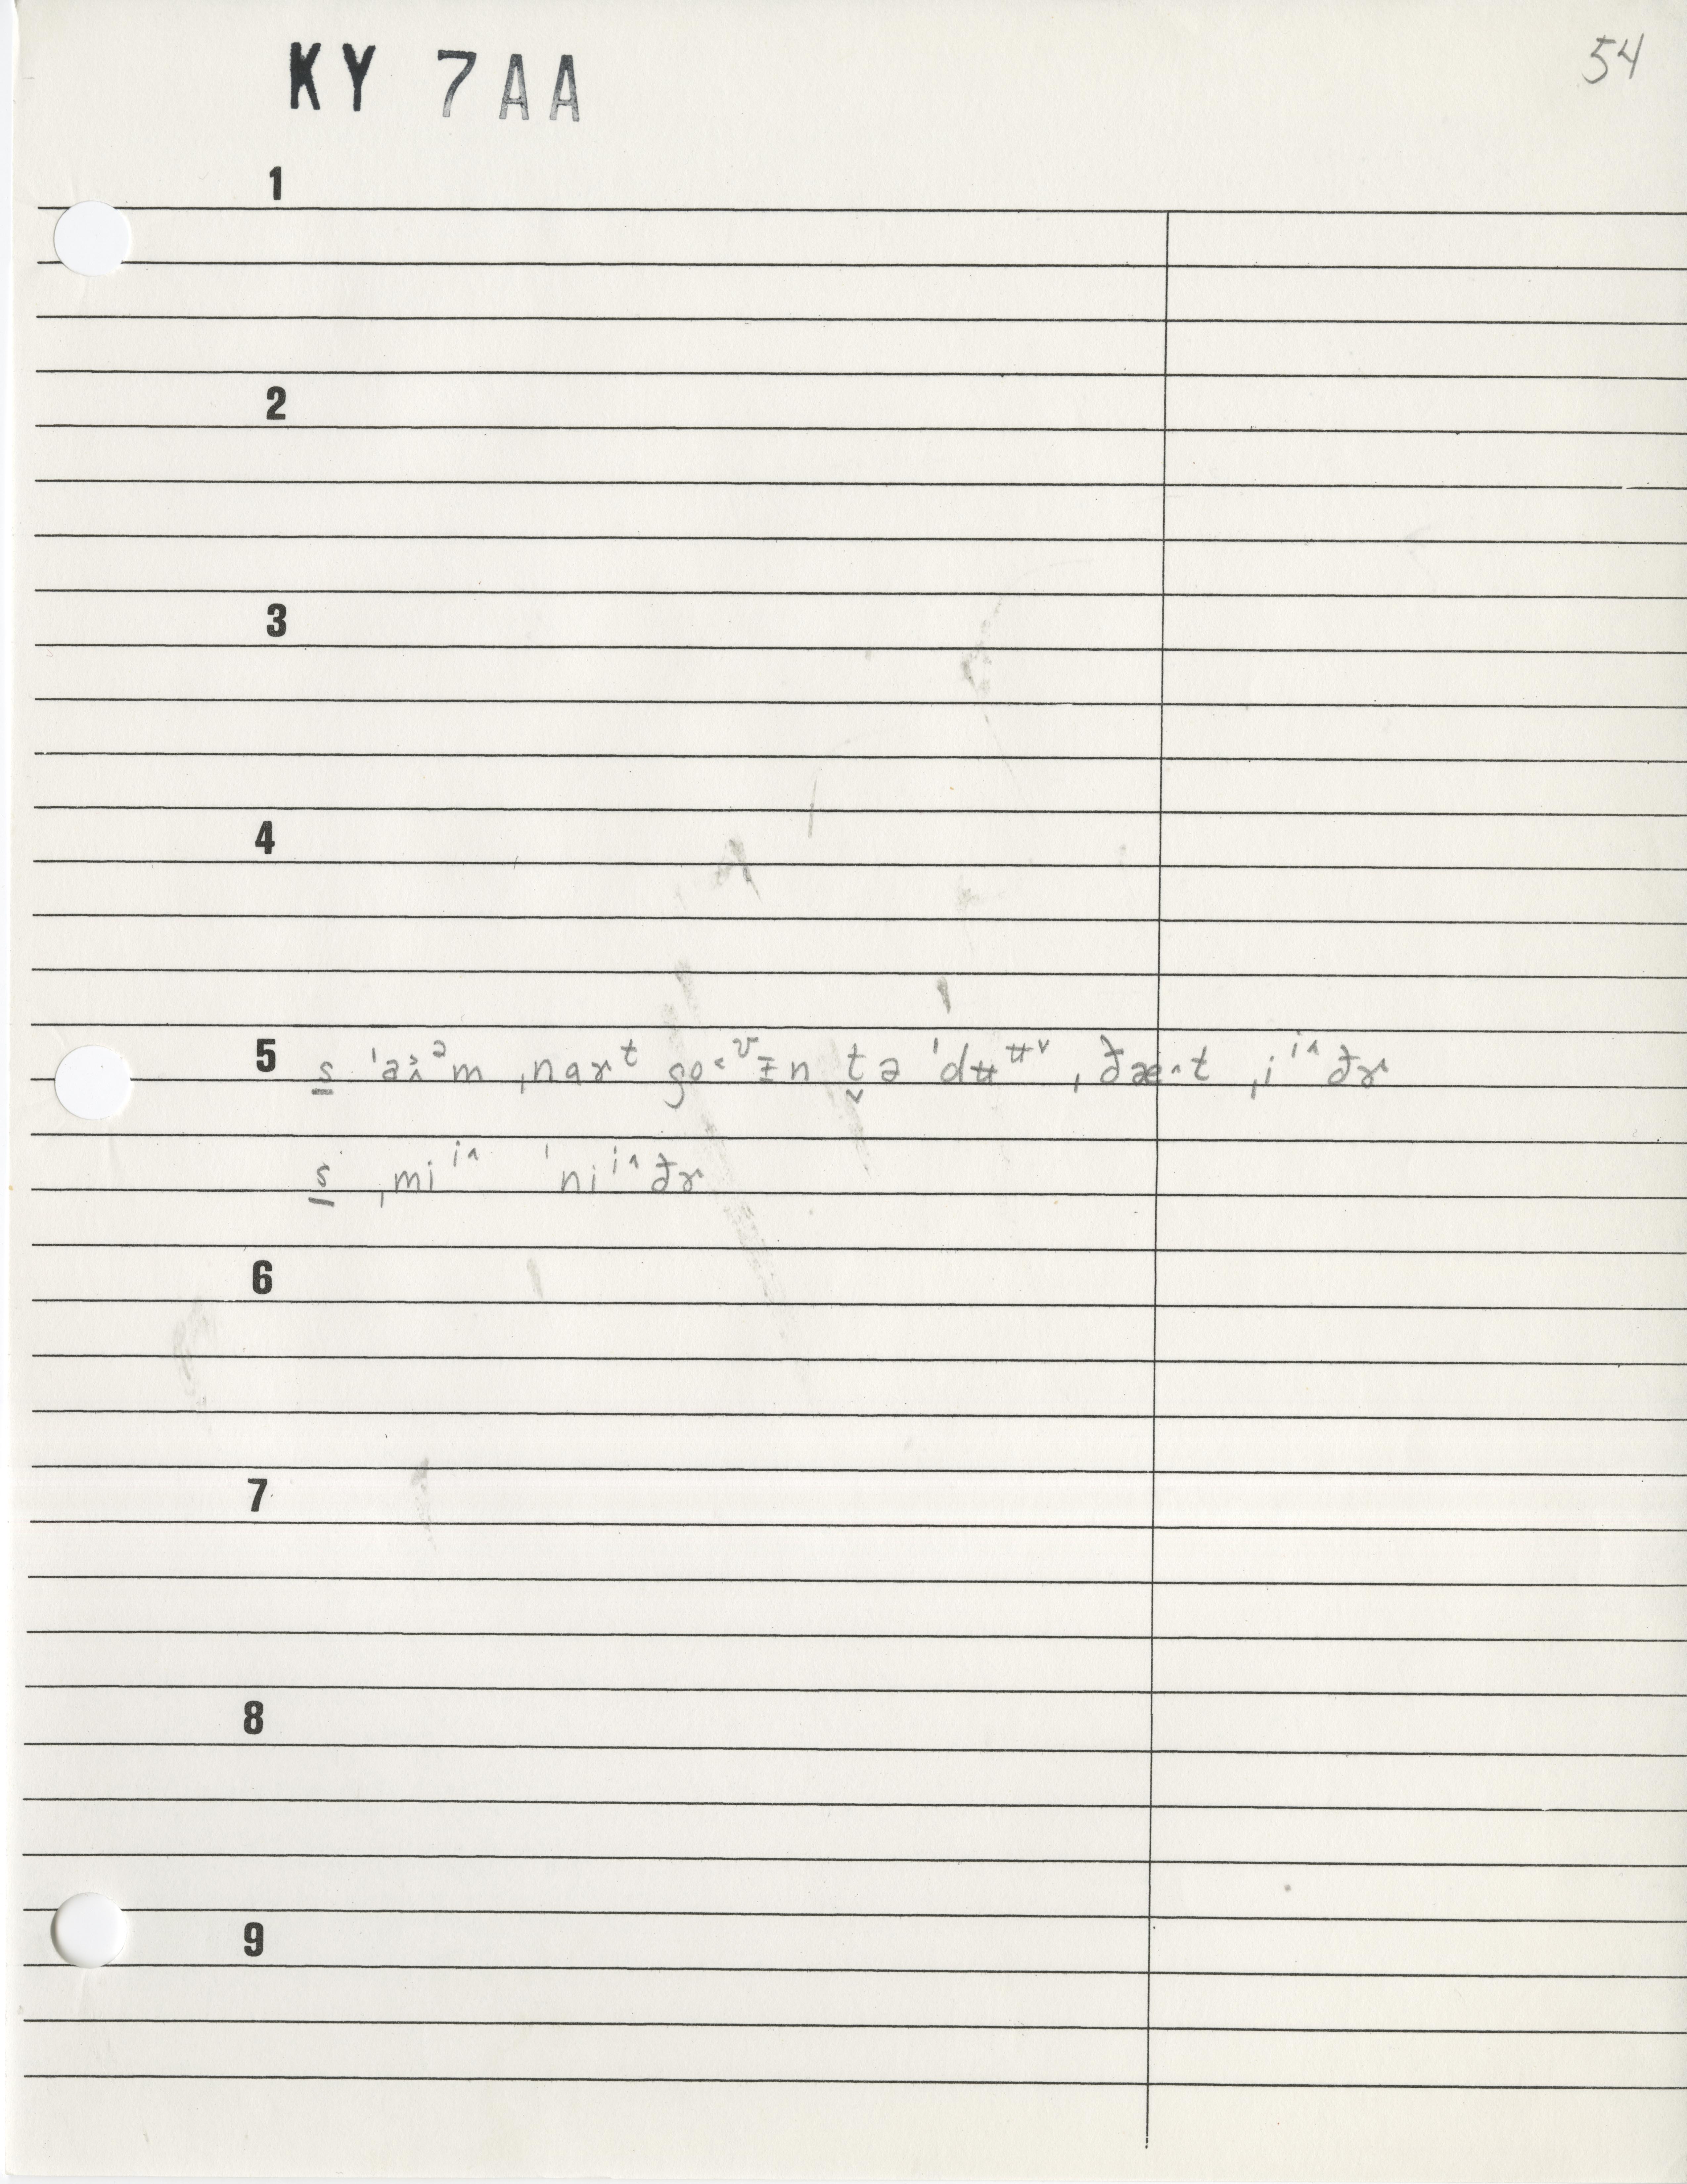 KY 7AA
54
1
2
3
4
5 s̲ ˈaɜ˄ᵊm ˌnɑɚᵗ go˂ᶷɪ̵n t̬ə ˈdʉʉ˅ ˌðæ˄t ˌiⁱ˄ðɚ
s̲ ˌmiⁱ˄ ˈniⁱ˄ðɚ
6
7
8
9